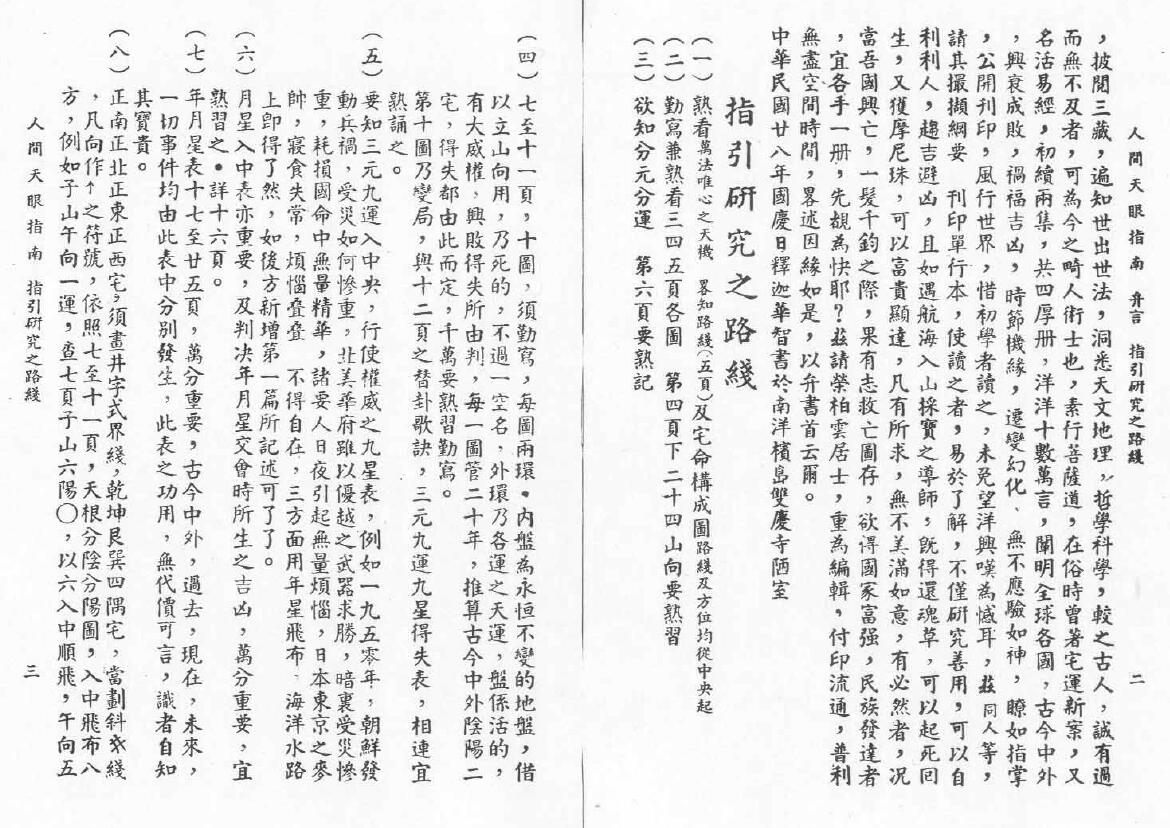 人間天眼指南　弁言　指引研究之路綫　二
，披閱三藏，遍知世出世法，洞悉天文地理，哲學科學，較之古人，誠有過
而無不及者，可為今之畸人術士也，素行菩薩道，在俗時曾著宅運新案，又
名活易經，初續兩集，共四厚册，洋洋十數萬言，闡明全球各國，古今中外
，興衰成敗，禍福吉凶，時節機緣，遷變幻化、無不應驗如神，瞭如指掌
，公開刊印，風行世界，惜初學者讀之，未免望洋興嘆為憾耳，茲同人等，
請其撮擷綱要　刊印單行本，使讀之者，易於了解，不僅研究善用，可以自
利利人，趨吉避凶，且如遇航海入山採寶之導師，既得還魂草，可以起死回
生，又獲摩尼珠，可以富貴顯達，凡有所求，無不美滿如意，有必然者，况
當吾國興亡，一髮千鈞之際，果有志救亡圖存，欲得國家富强，民族發達者
，宜各手一册，先覩為快耶？茲請榮柏雲居士，重為編輯，付印流通，普利
無盡空間時間，畧述因緣如是，以弁書首云爾。
中華民國廿八年國慶日釋迦華智書於南洋檳島雙慶寺陋室
指引研究之路綫
（一）熟看萬法唯心之天機　畧知路綫（五頁）及宅命構成圖路綫及方位均從中央起
（二）勤寫兼熟看三四五頁各圖　第四頁下二十四山向要熟習
（三）欲知分元分運　第六頁要熟記
（四）七至十一頁，十圖，須勤寫，每圖兩環・內盤為永恒不變的地盤，借
以立山向用，乃死的，不過一空名，外環乃各運之天運，盤係活的，
有大威權，興敗得失所由判，每一圖管二十年，推算古今中外陰陽二
宅，得失都由此而定，千萬要熟習勤寫。
第十圖乃變局，與十二頁之替卦歌訣，三元九運九星得失表，相連宜
熟誦之。
（五）要知三元九運入中央，行使權威之九星表，例如一九五零年，朝鮮發
動兵禍，受災如何慘重，北美華府雖以優越之武器求勝，暗裏受災慘
重，耗損國命中無量精華，諸要人日夜引起無量煩惱，日本東京之麥
帥，寢食失常，煩惱叠叠　不得自在，三方面用年星飛布，海洋水路
上卽得了然，如後方新增第一篇所記述可了了。
（六）月星入中表亦重要，及判決年月星交會時所生之吉凶，萬分重要，宜
熟習之・詳十六頁。
（七）年月星表十七至廿五頁，萬分重要，古今中外，過去，現在，未來，
一切事件均由此表中分別發生，此表之功用，無代價可言，識者自知
其寶貴。
（八）正南正北正東正西宅，須畫井字式界綫，乾坤艮巽四隅宅，當劃斜綫
，凡向作↑之符號，依照七至十一頁，天根分陰分陽圖，入中飛布八
方，例如子山午向一運，查七頁子山六陽○，以六入中順飛，午向五
人間天眼指南　指引研究之路綫　三